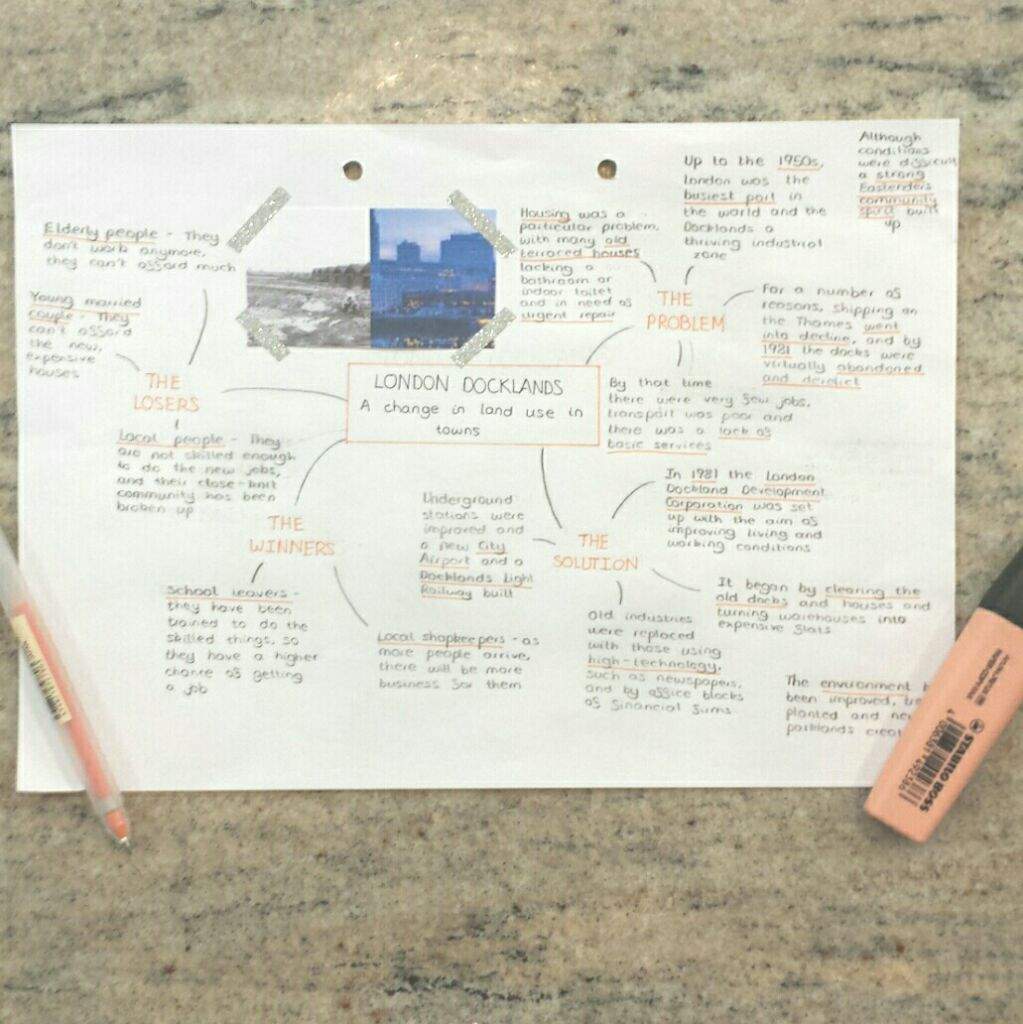 LONDON DOCKLANDS
A change in land use in
towns
THE
PROBLEM
Housing was a
particular problem,
with many old
terraced houses
lacking a
bathroom or
indoor toilet
and in need of
urgent repair
Up to the 1950s,
London was the
busiest port in
the world and the
Docklands a
thriving industrial
zone
Although
conditions
were difficult
a strong
Eastenders
community
spirit built
up
For a number of
reasons, shipping on
the Thames went
into decline, and by
1981 the docks were
virtually abandoned
and derelict
By that time
there were very few jobs,
transport was poor and
there was a lack of
basic services
THE
SOLUTION
In 1981 the London
Dockland Development
Corporation was set
up with the aim of
improving living and
working conditions
It began by clearing the
old docks and houses and
turning warehouses into
expensive flats
The environment
been improved,
planted and
parklands
Old industries
were replaced
with those using
high-technology,
such as newspapers,
and by office blocks
of financial firms
Underground
stations were
improved and
a new City
Airport and a
Docklands Light
Railway built
THE
WINNERS
School leavers -
they have been
trained to do the
skilled things, so
they have a higher
chance of getting
a job
Local shopkeepers - as
more people arrive,
there will be more
business for them
THE
LOSERS
Elderly people - They
don't work anymore,
they can't afford much
Young married
couple - They
can't afford
the new,
expensive
houses
Local people - They
are not skilled enough
to do the new jobs,
and their close-knit
community has been
broken up
STABILO BOSS